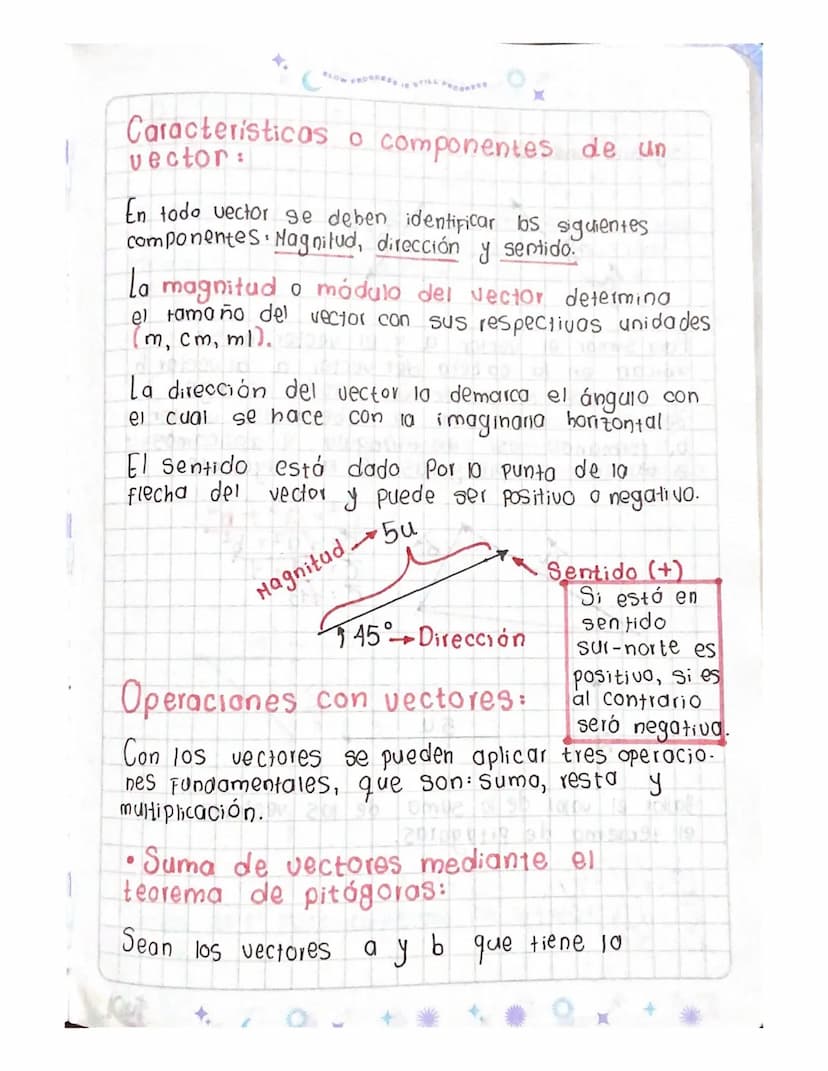 SLOW PROGRESS IS STILL PROGRESS
Características o componentes de un
vector:
En todo vector se deben identificar los siguientes
componentes: Magnitud, dirección y sentido.
La magnitud o módulo del vector determina
el tamaño del vector con sus respectivas unidades
(m, cm, ml).
La dirección del vector la demarca el ángulo con
el cual se hace con la imaginaria horizontal
El sentido está dado Por la punta de la
flecha del vector y puede ser positivo o negativo.
Magnitud → 5u
Sentido (+)
45° → Dirección
Si está en
sentido
sur-norte es
positiva, si es
al contrario
será negativa.
Operaciones con vectores:
Con los vectores se pueden aplicar tres operacio-
nes fundamentales, que son: suma, resta y
multiplicación.
• Suma de vectores mediante el
teorema de pitágoras:
Sean los vectores a y b que tiene la